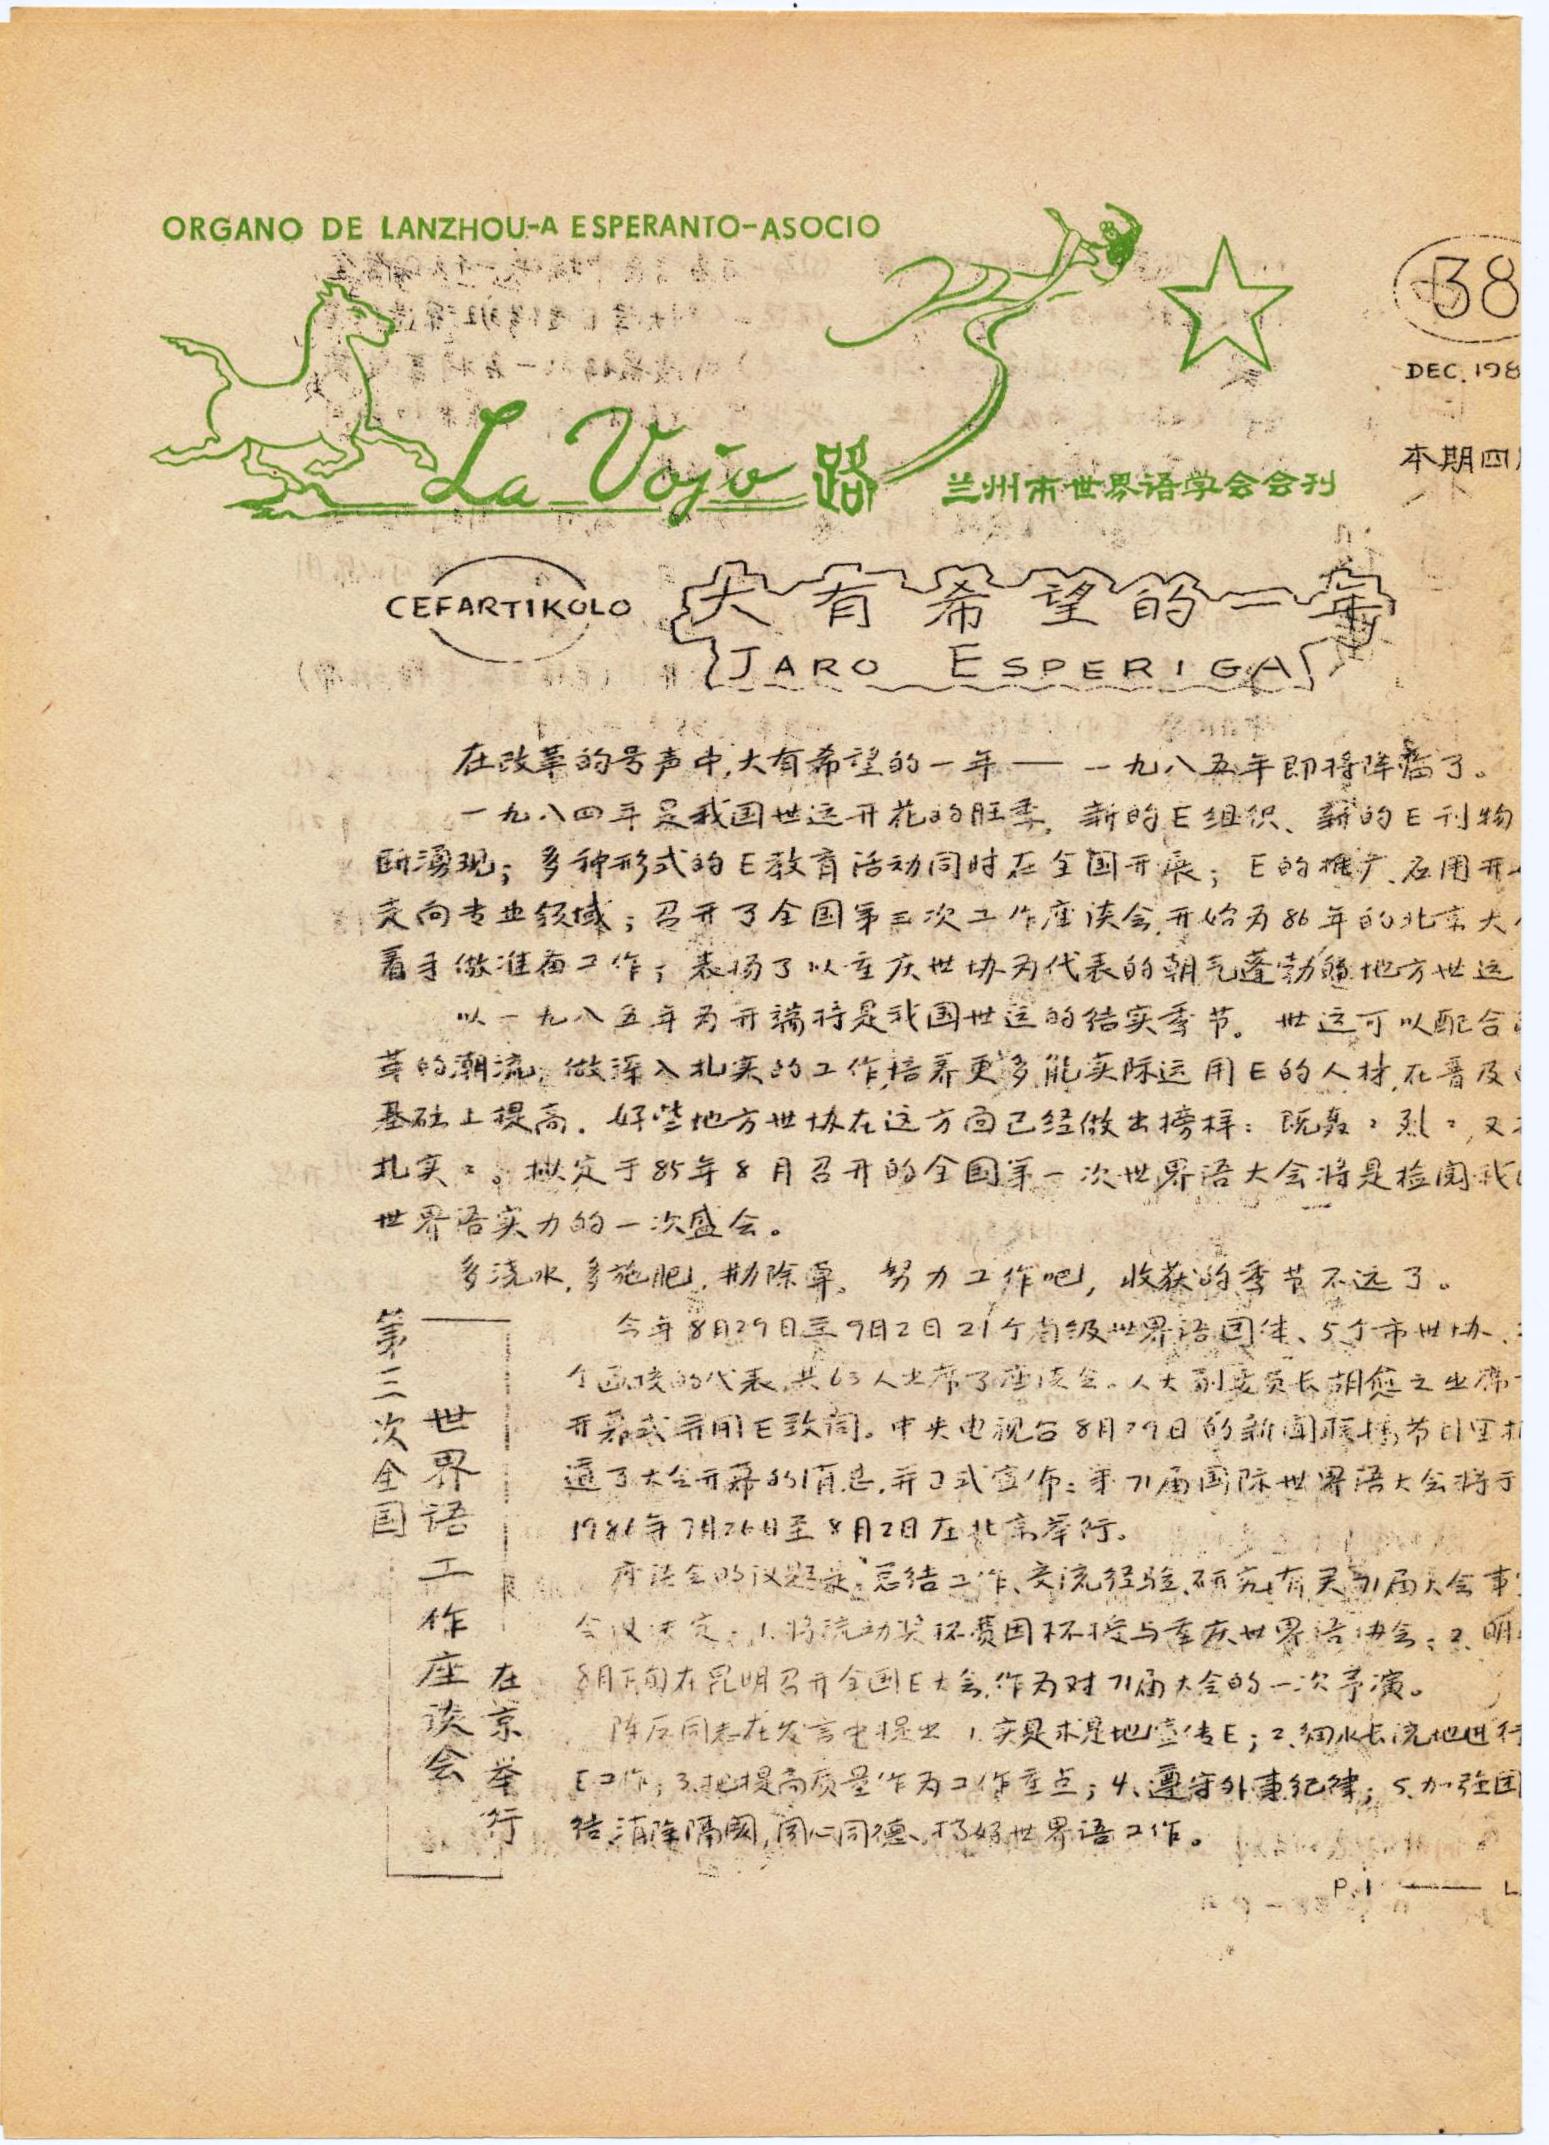 ORGANO DE LANZHOU-A ESPERANTO-ASOCIO
38
DEC. 198
本期四
La Vojo 路
兰州市世界语学会会刊
CEFARTIKOLO
大有希望的一年
JARO ESPERIGA
在改革的号声中,大有希望的一年——一九八五年即将降临了。
一九八四年是我国世运开花的旺季,新的E组织、新的E刊物
断涌现;多种形式的E教育活动同时在全国开展;E的推广、应用开
走向专业领域;召开了全国第三次工作座谈会,开始为86年的北京大
着手做准备工作;表扬了以重庆世协为代表的朝气蓬勃的地方世运
以一九八五年为开端将是我国世运的结实季节。世运可以配合
革的潮流,做深入扎实的工作,培养更多能实际运用E的人材,在普及
基础上提高.好些地方世协在这方面已经做出榜样:既轰〻烈〻,又
扎实〻。拟定于85年8月召开的全国第一次世界语大会将是检阅我
世界语实力的一次盛会。
多浇水,多施肥,勤除草。努力工作吧,收获的季节不远了。
第三次全国
世界语工作座谈会
在京举行
今年8月29日至9月2日21个省级世界语团体、5个市世协、
个函授的代表,共63人出席了座谈会。人大副委员长胡愈之出席
开幕式并用E致词。中央电视台8月29日的新闻联播节目里
道了大会开幕的消息,并正式宣布:第71届国际世界语大会将于
1986年7月26日至8月2日在北京举行。
座谈会的议题是:总结工作、交流经验、研究有关71届大会事
会议决定:1.将流动奖杯费因杯授与重庆世界语协会;2.明
8月下旬在昆明召开全国E大会,作为对71届大会的一次予演。
陈原同志在发言中提出 1.实是求是地宣传E;2.细水长流地进行
E工作;3.把提高质量作为工作重点;4.遵守外事纪律;5.加强团
结,消除隔阂,同心同德、搞好世界语工作。
P.1 —— L